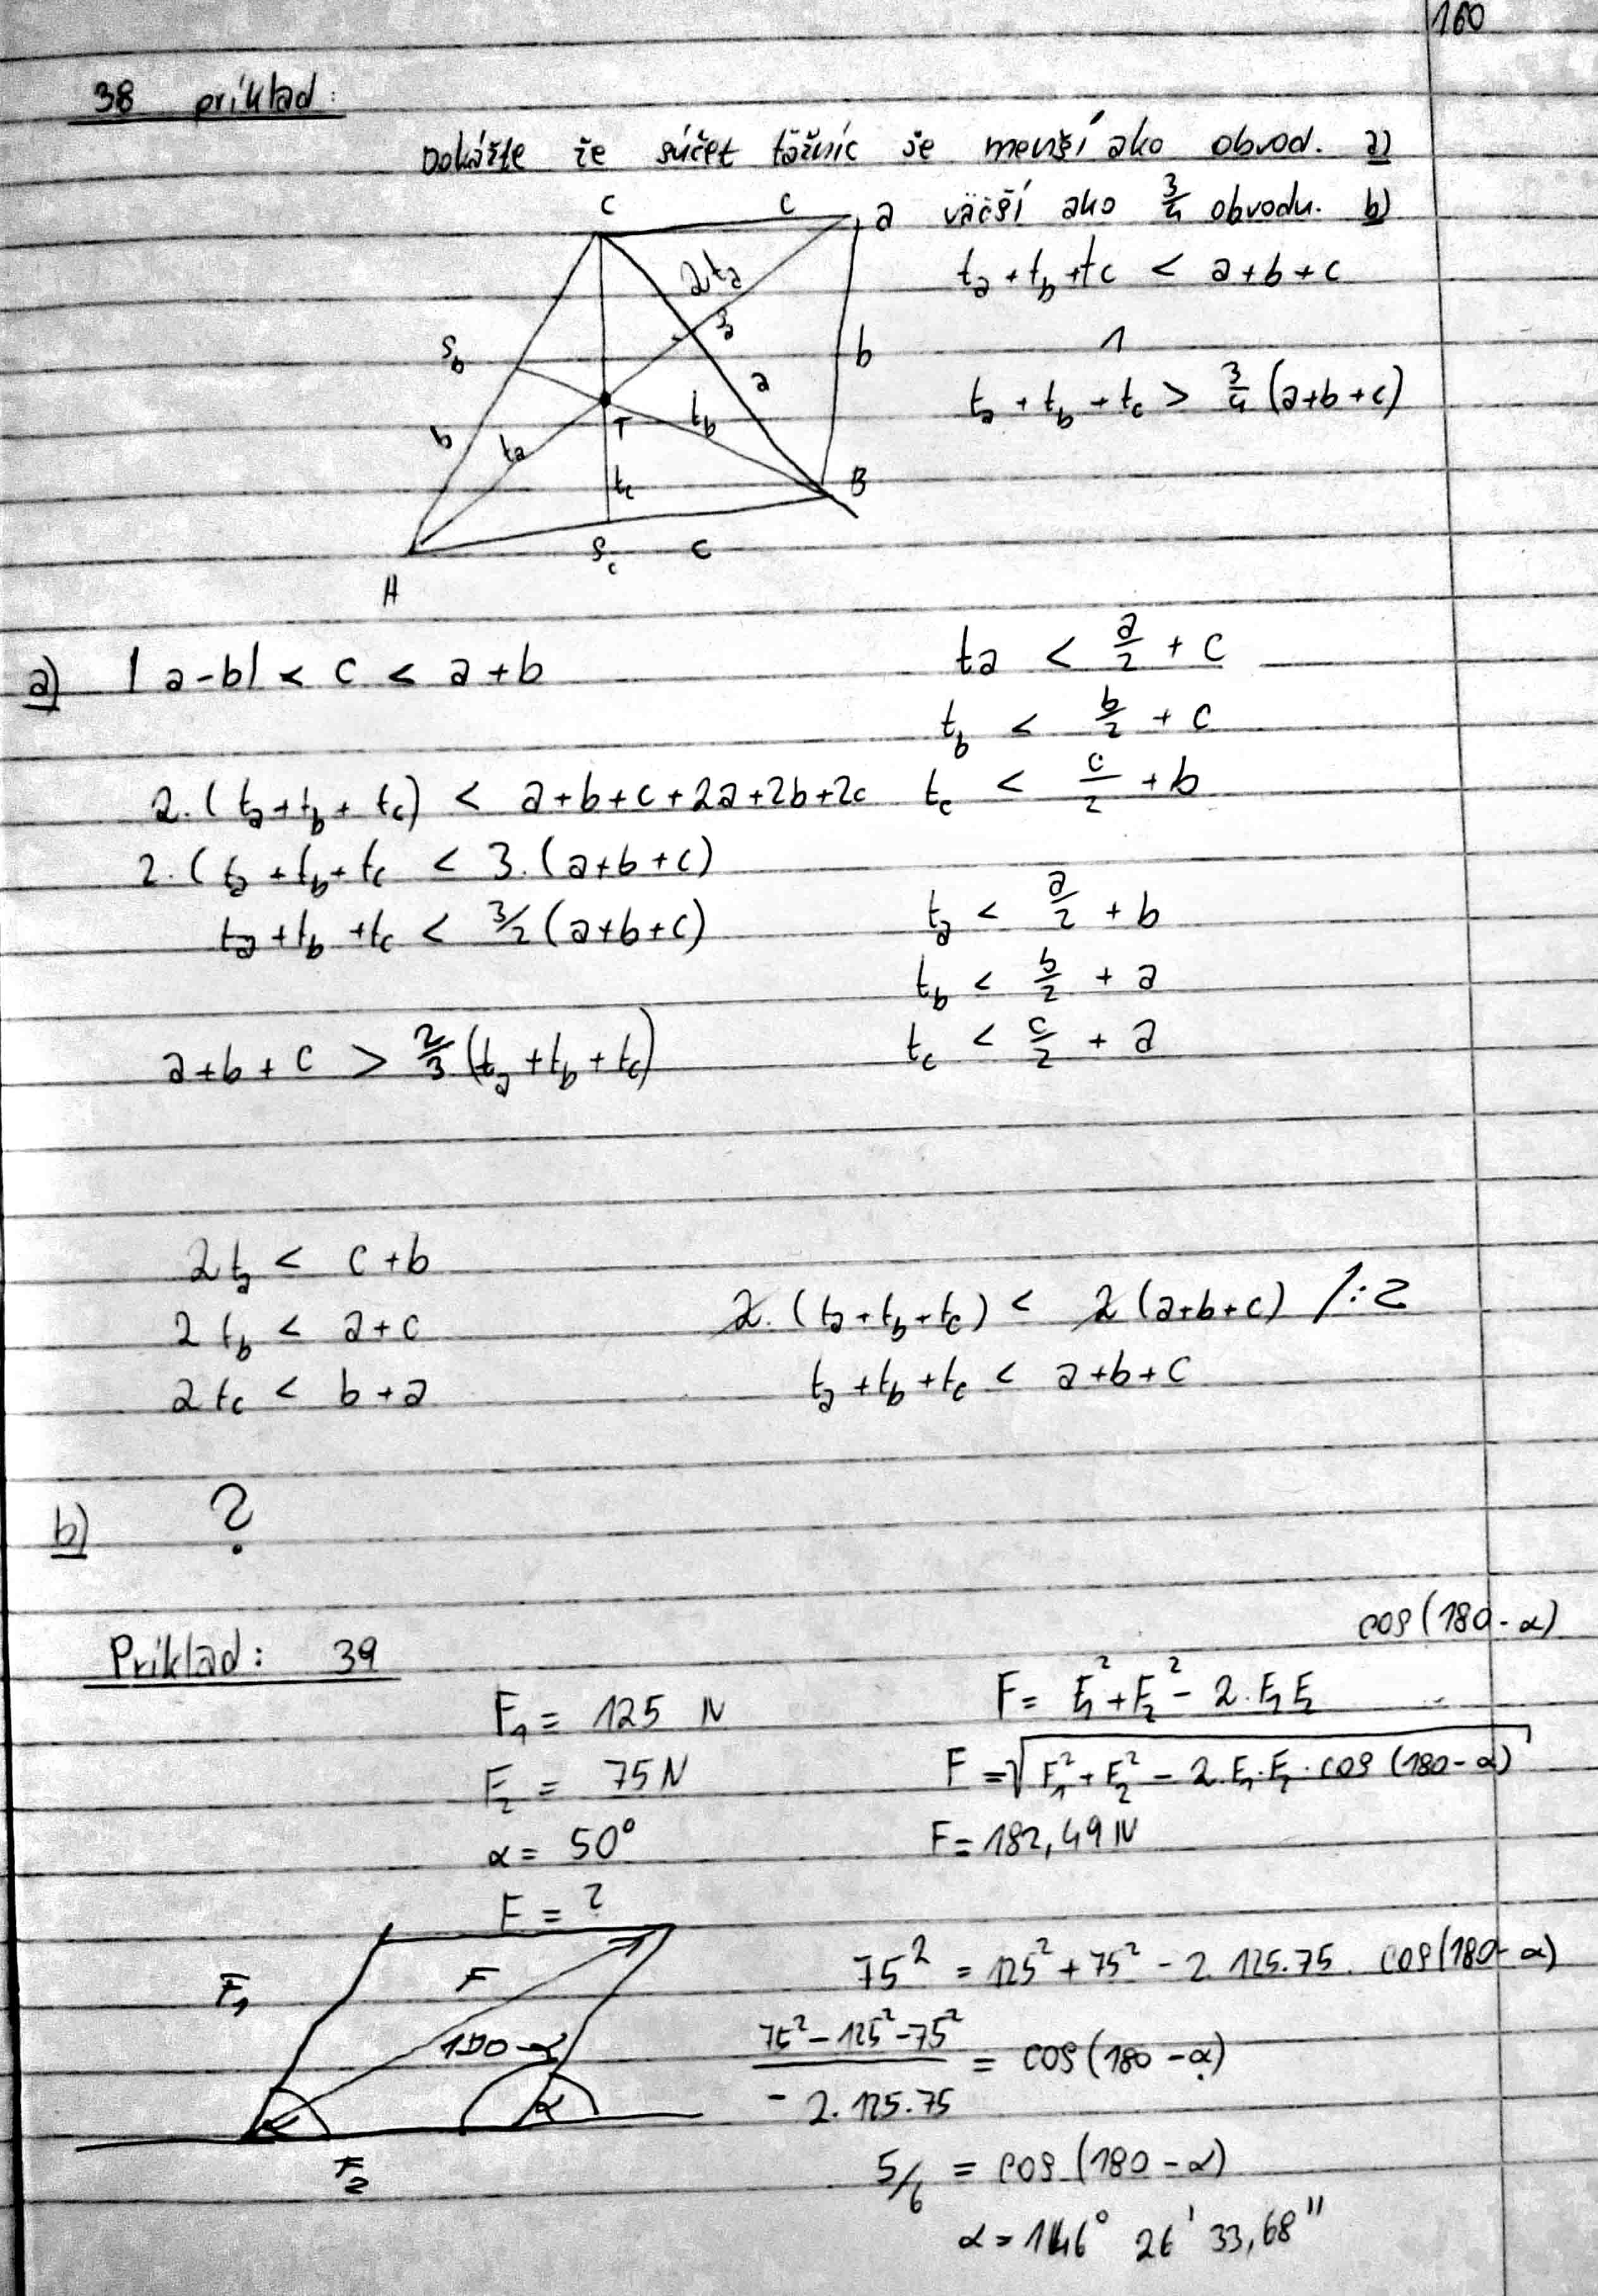 160
38 príklad:
Dokážte že súčet ťažníc je menší ako obvod. a)
väčší ako 3/4 obvodu. b)
C c a
2ta
ta + tb + tc < a+b+c
Sb
a
b
1
b ta T tb
ta + tb + tc > 3/4 (a+b+c)
tc
B
Sc c
A
a) |a-b| < c < a+b
ta < a/2 + c
tb < b/2 + c
2.(ta+tb+tc) < a+b+c+2a+2b+2c
tc < c/2 + b
2.(ta+tb+tc < 3.(a+b+c)
ta+tb+tc < 3/2(a+b+c)
ta < a/2 + b
tb < b/2 + a
a+b+c > 2/3(ta+tb+tc)
tc < c/2 + a
2ta < c+b
2tb < a+c
2.(ta+tb+tc) < 2(a+b+c) /:2
2tc < b+a
ta+tb+tc < a+b+c
b) ?
Príklad: 39
cos(180-α)
F1 = 125 N
F = F1²+F2² - 2.F1F2
F2 = 75N
F = √F1²+F2² - 2.F1.F2.cos(180-α)
α = 50°
F = 182,49 N
F = ?
F1 F
180-α
α
F2
75² = 125²+75² - 2.125.75. cos(180-α)
75²-125²-75² / -2.125.75 = cos(180-α)
5/6 = cos(180-α)
α = 146° 26' 33,68"